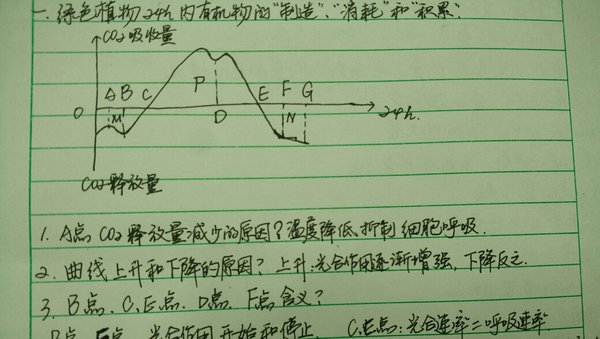 一、绿色植物24h内有机物的"制造"、"消耗"和"积累".
CO₂吸收量
A B C P E F G
O M D N 24h.
CO₂释放量
1. A点CO₂释放量减少的原因?温度降低抑制细胞呼吸.
2. 曲线上升和下降的原因? 上升:光合作用逐渐增强,下降反之.
3. B点、C、E点、D点、F点含义?
B点、F点:光合作用开始和停止. C、E点:光合速率=呼吸速率.